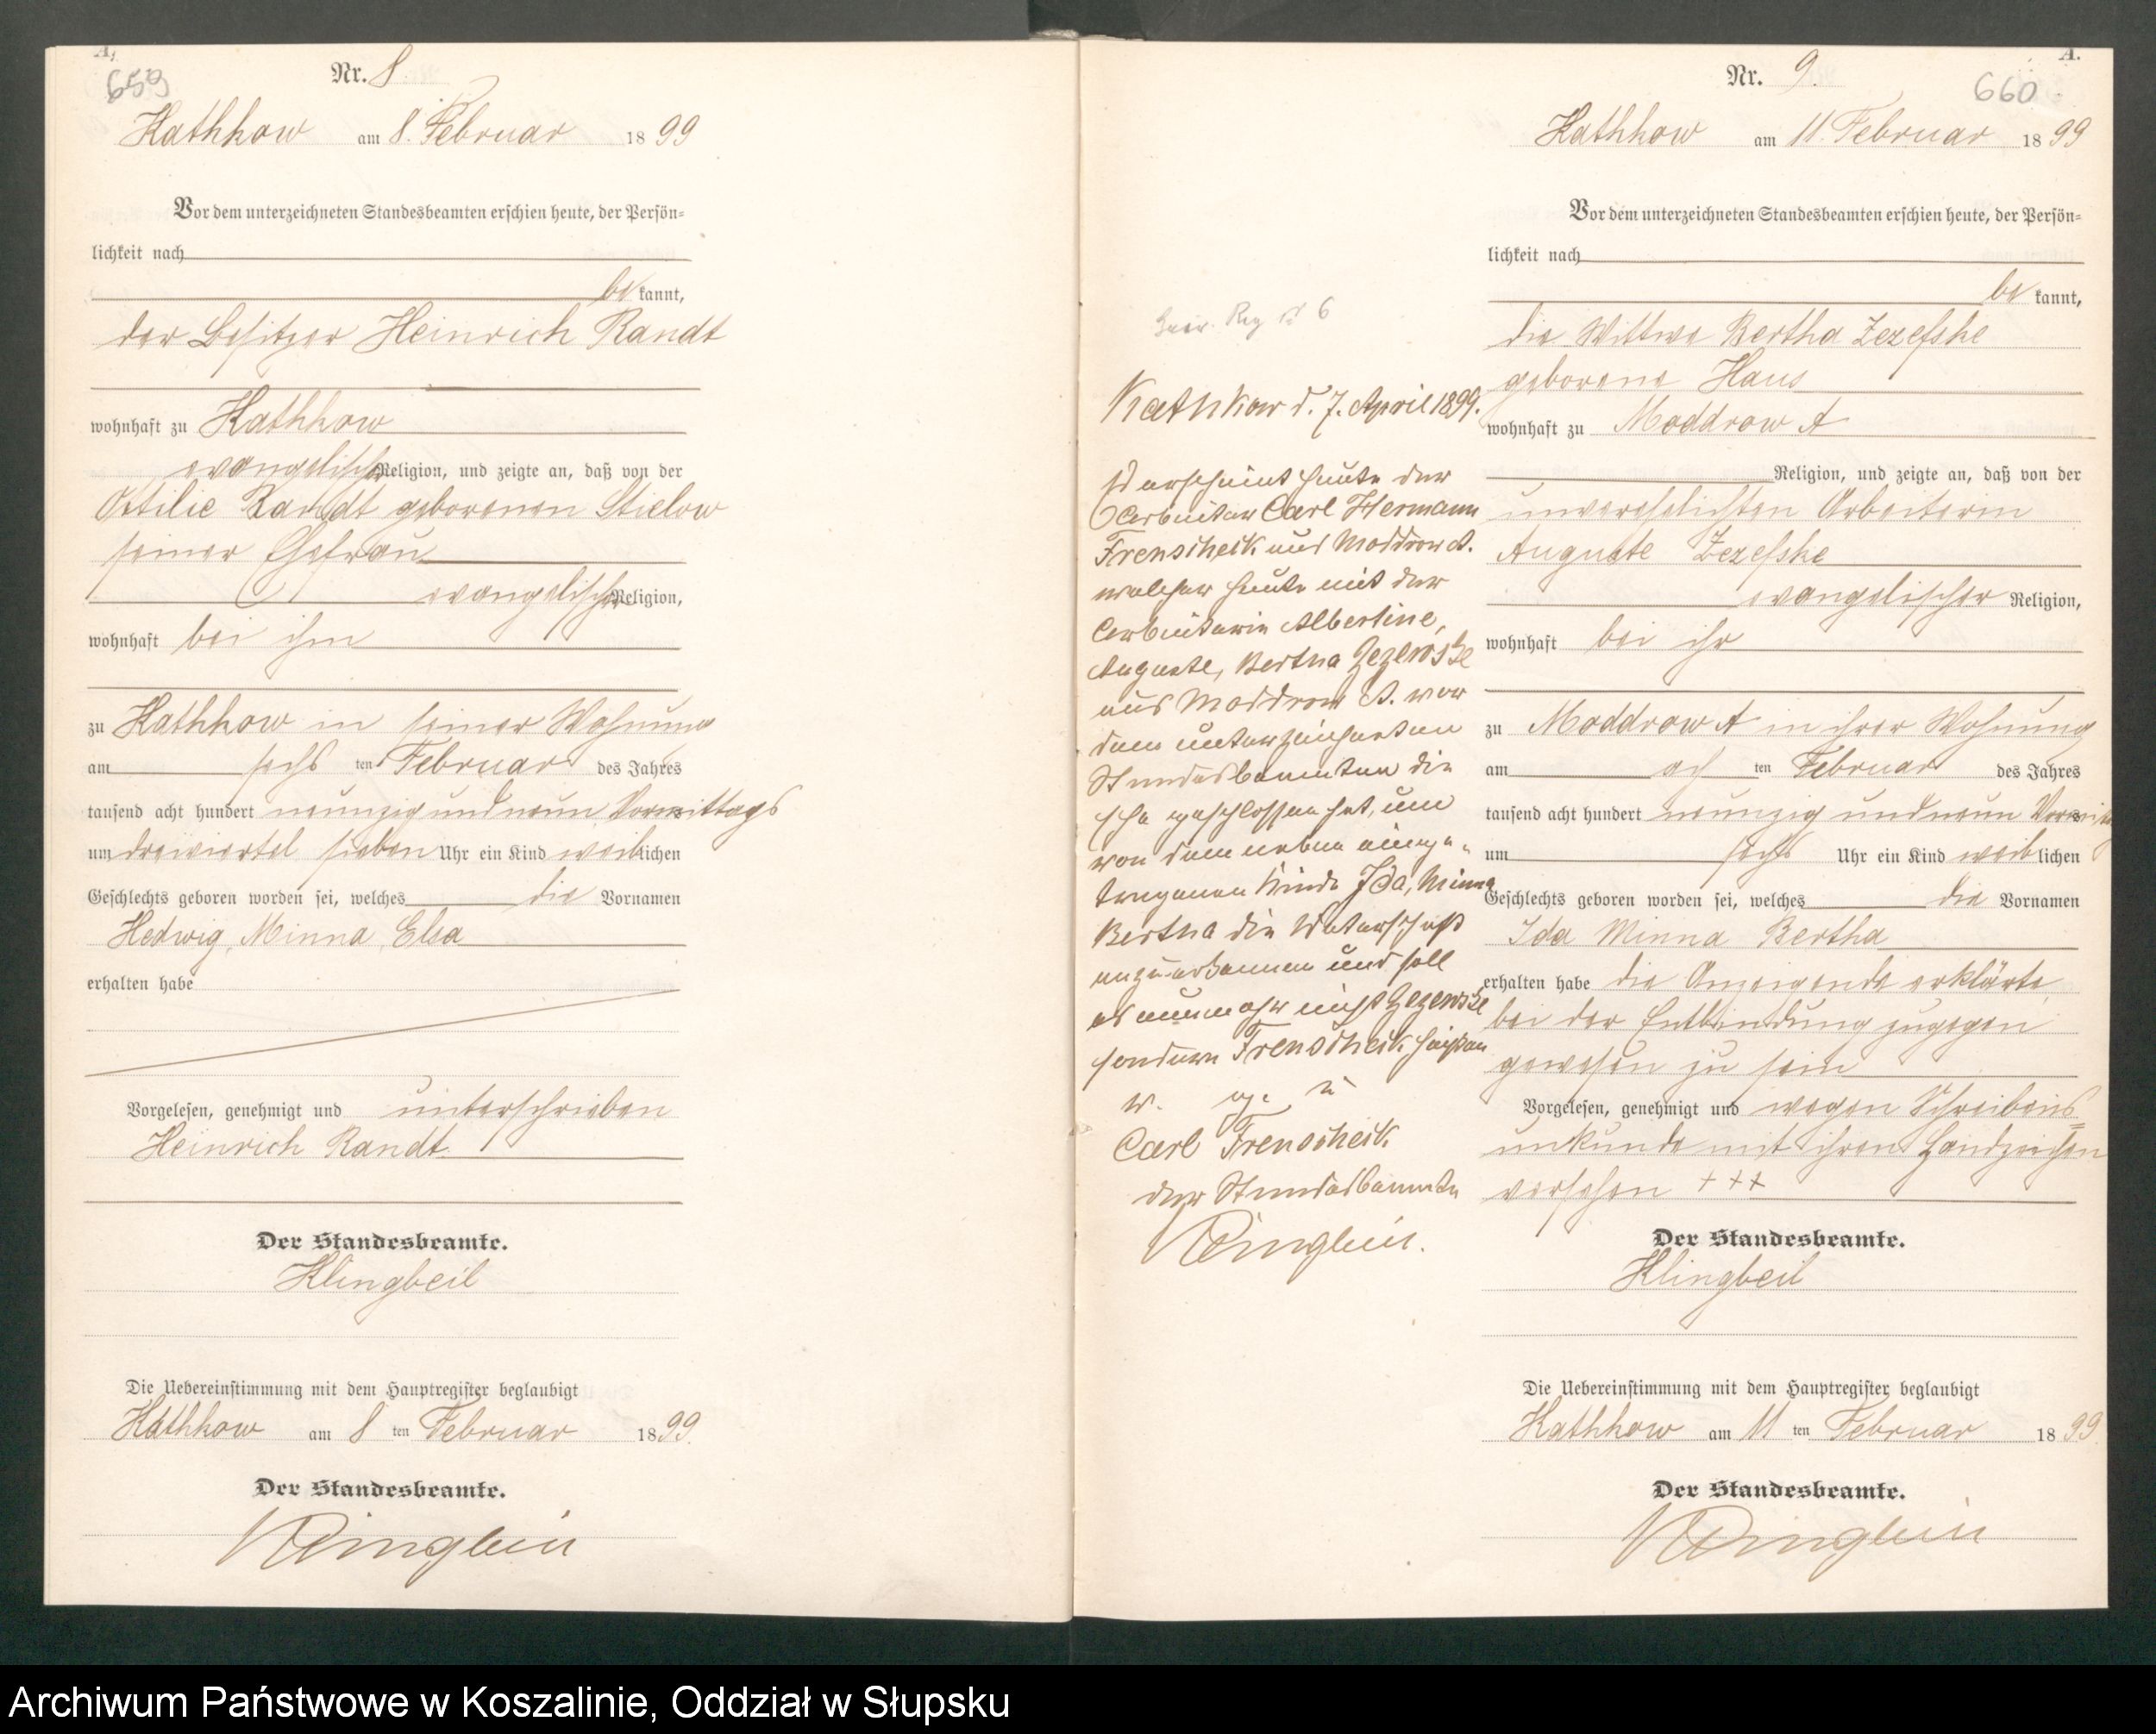 A,
659
Nr. 8.
Kathkow am 8. Februar 1899
Vor dem unterzeichneten Standesbeamten erschien heute, der Persön=
lichkeit nach
be kannt,
der Besitzer Heinrich Randt
wohnhaft zu Kathkow
evangelischer Religion, und zeigte an, daß von der
Ottilie Randt geborenen Stielow
seiner Ehefrau
evangelischer Religion,
wohnhaft bei ihm
zu Kathkow in seiner Wohnung
am sechs ten Februar des Jahres
tausend acht hundert neunzig und neun Vormittags
um dreiviertel sieben Uhr ein Kind weiblichen
Geschlechts geboren worden sei, welches die Vornamen
Hedwig, Minna, Elsa
erhalten habe
Vorgelesen, genehmigt und unterschrieben
Heinrich Randt
Der Standesbeamte.
Klingbeil
Die Uebereinstimmung mit dem Hauptregister beglaubigt
Kathkow am 8 ten Februar 1899.
Der Standesbeamte.
Klingbeil
Reg № 6
Kathkow d. 7. April 1899.
Es erscheint heute der
Arbeiter Carl Hermann
aus Moddrow A.
welcher heute mit der
Arbeiterin Albertine,
Auguste, Bertha
aus Moddrow A. vor
dem unterzeichneten
Standesbeamten die
Ehe geschlossen hat, um
von dem neben einge=
tragenen Kinde Ida, Minna
Bertha die Vaterschaft
anzuerkennen und soll
es nunmehr nicht
sondern heißen
v. g. u
Carl
der Standesbeamte
Klingbeil.
A.
660
Nr. 9.
Kathkow am 11. Februar 1899
Vor dem unterzeichneten Standesbeamten erschien heute, der Persön=
lichkeit nach
be kannt,
die Wittwe Bertha Zezefske
geborene Haus
wohnhaft zu Moddrow A
Religion, und zeigte an, daß von der
unverehelichten Arbeiterin
Auguste Zezefske
evangelischer Religion,
wohnhaft bei ihr
zu Moddrow A in ihrer Wohnung
am ach ten Februar des Jahres
tausend acht hundert neunzig und neun
um sechs Uhr ein Kind weiblichen
Geschlechts geboren worden sei, welches die Vornamen
Ida Minna Bertha
erhalten habe die Anzeigende erklärte
bei der Entbindung zugegen
gewesen zu sein
Vorgelesen, genehmigt und wegen Schreibens=
unkunde mit ihren Handzeichen
versehen +++
Der Standesbeamte.
Klingbeil
Die Uebereinstimmung mit dem Hauptregister beglaubigt
Kathkow am 11 ten Februar 1899.
Der Standesbeamte.
Klingbeil
Archiwum Państwowe w Koszalinie, Oddział w Słupsku